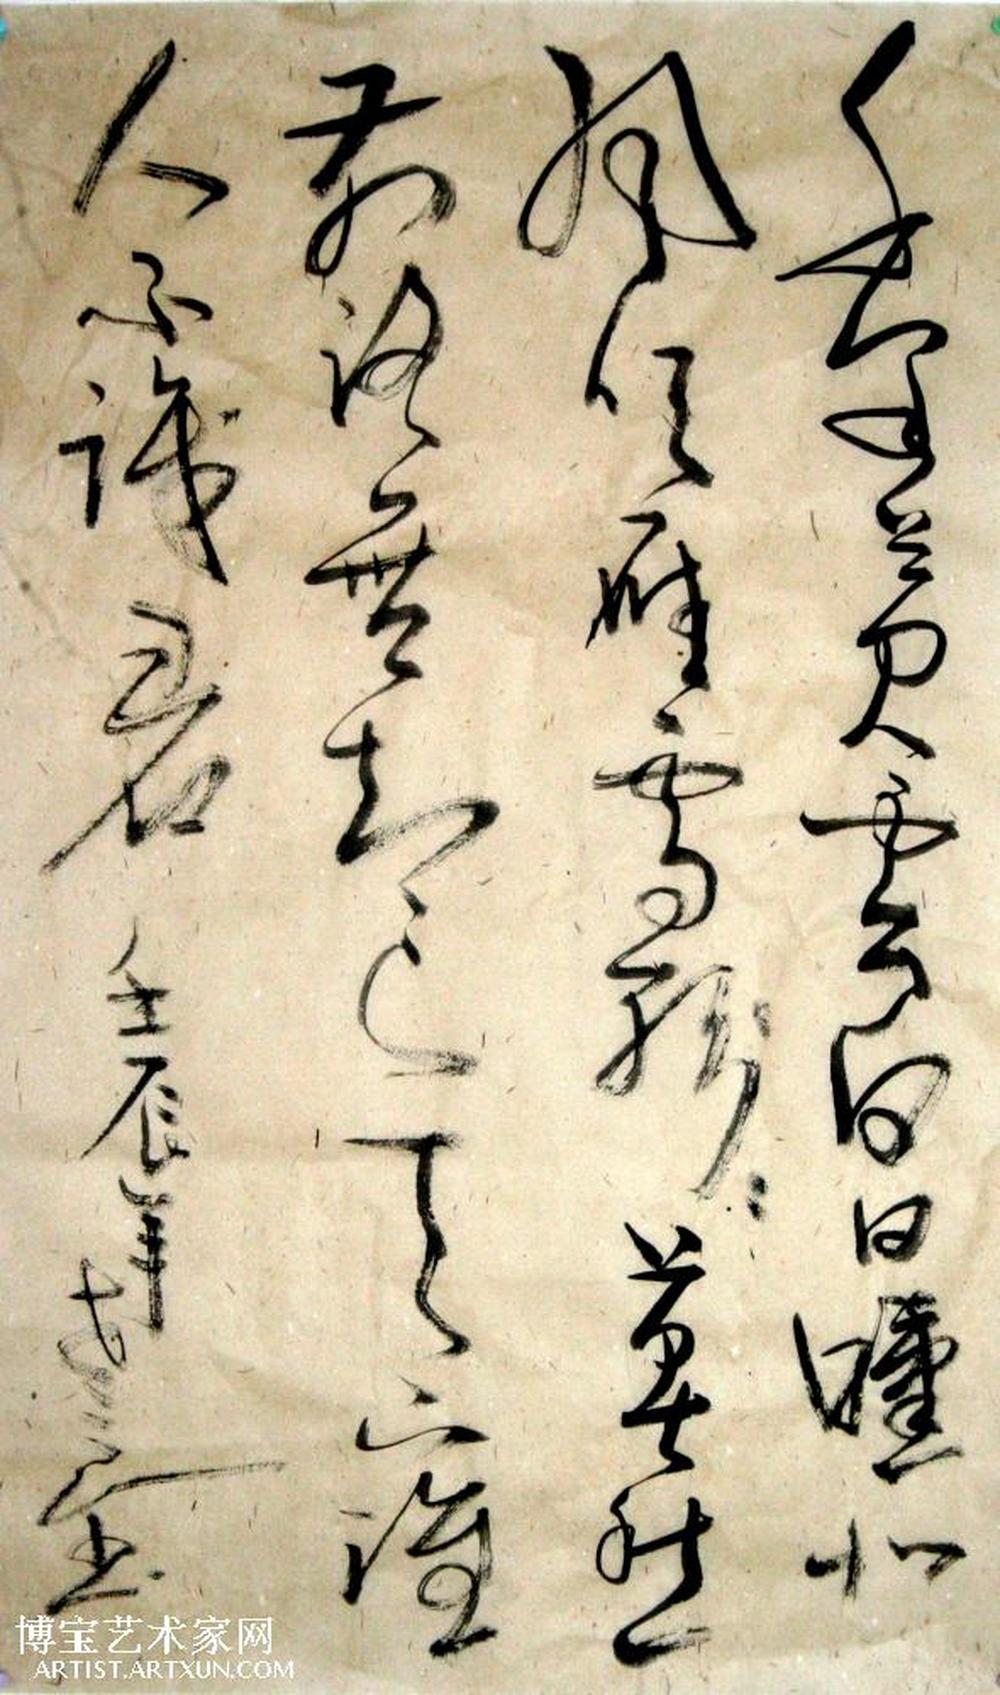 千里黄雲白日曛北
風吹雁雪紛紛莫愁
前路無知己天下誰
人不識君 壬辰年 书
博宝艺术家网
ARTIST.ARTXUN.COM